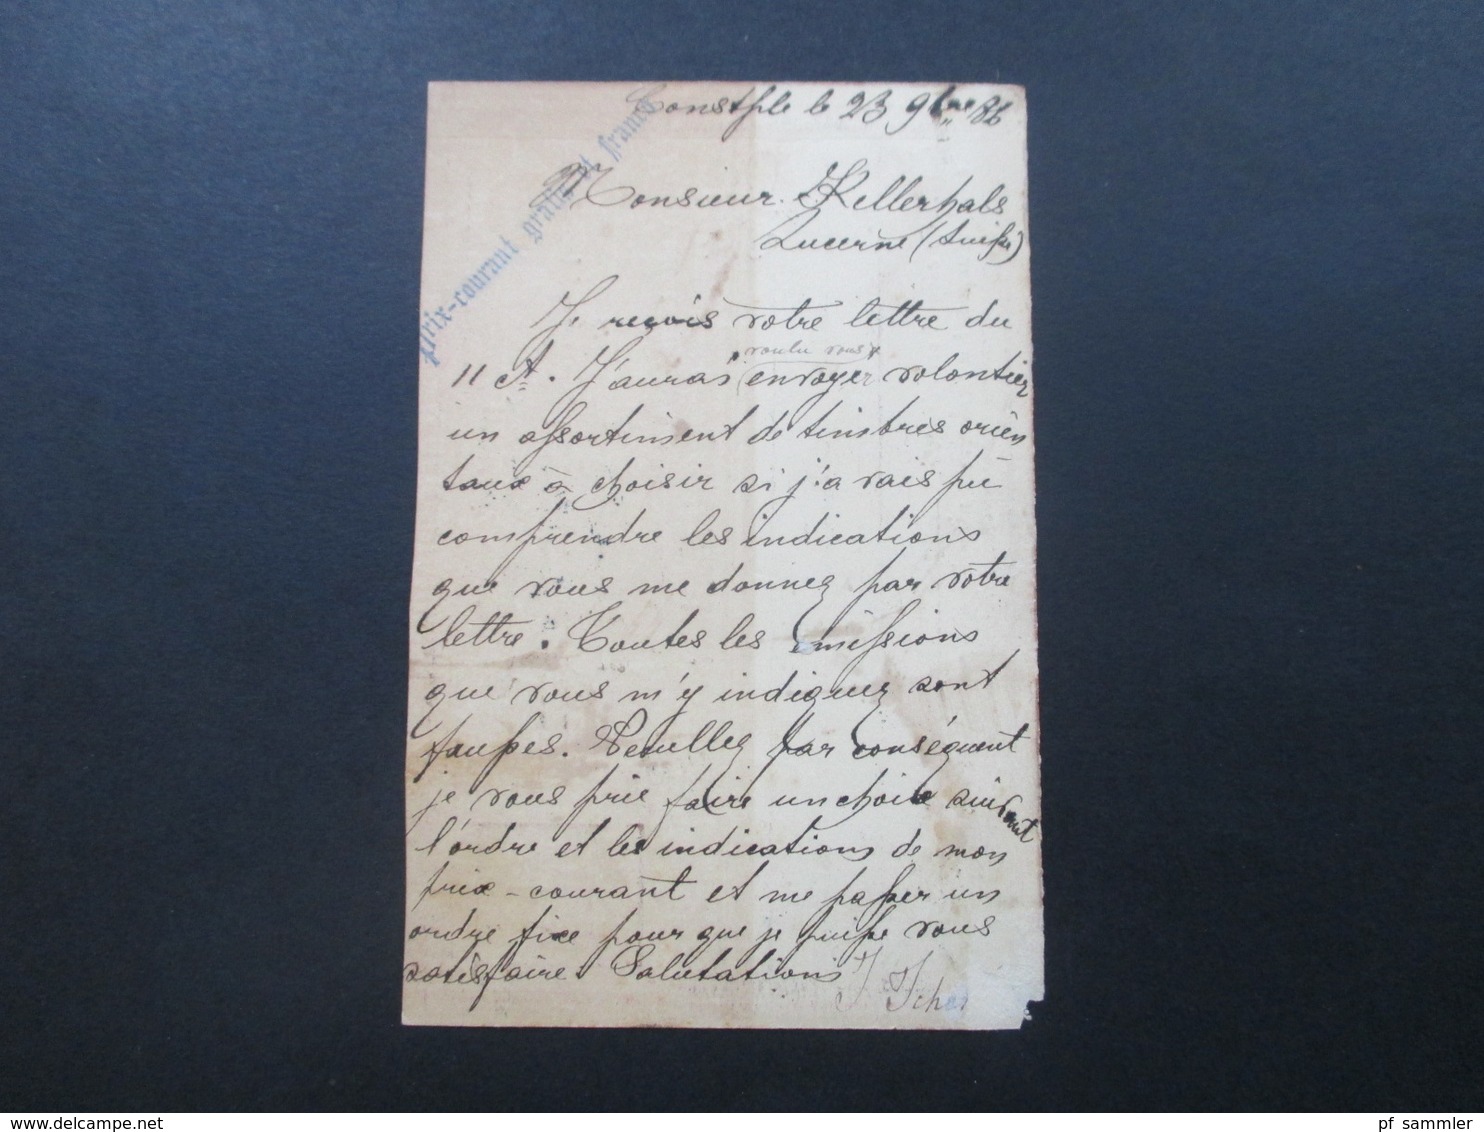 Constple le 23 9bre 86
Prix-courant gratis et franco
Monsieur Kellerhals
Lucerne (Suisse)
Je reçois votre lettre du
voulu vous
11 ct. J'aurais envoyer volontiers
un assortiment de timbres orien
taux à choisir si j'avais pû
comprendre les indications
que vous me donnez par votre
lettre. Toutes les émissions
que vous m'y indiquez sont
fausses. Veuillez par conséquent
je vous prie faire un choix suivant
l'ordre et les indications de mon
prix-courant et me passer un
ordre fixe pour que je puisse vous
satisfaire. Salutations
delcampe.net
pf_sammler